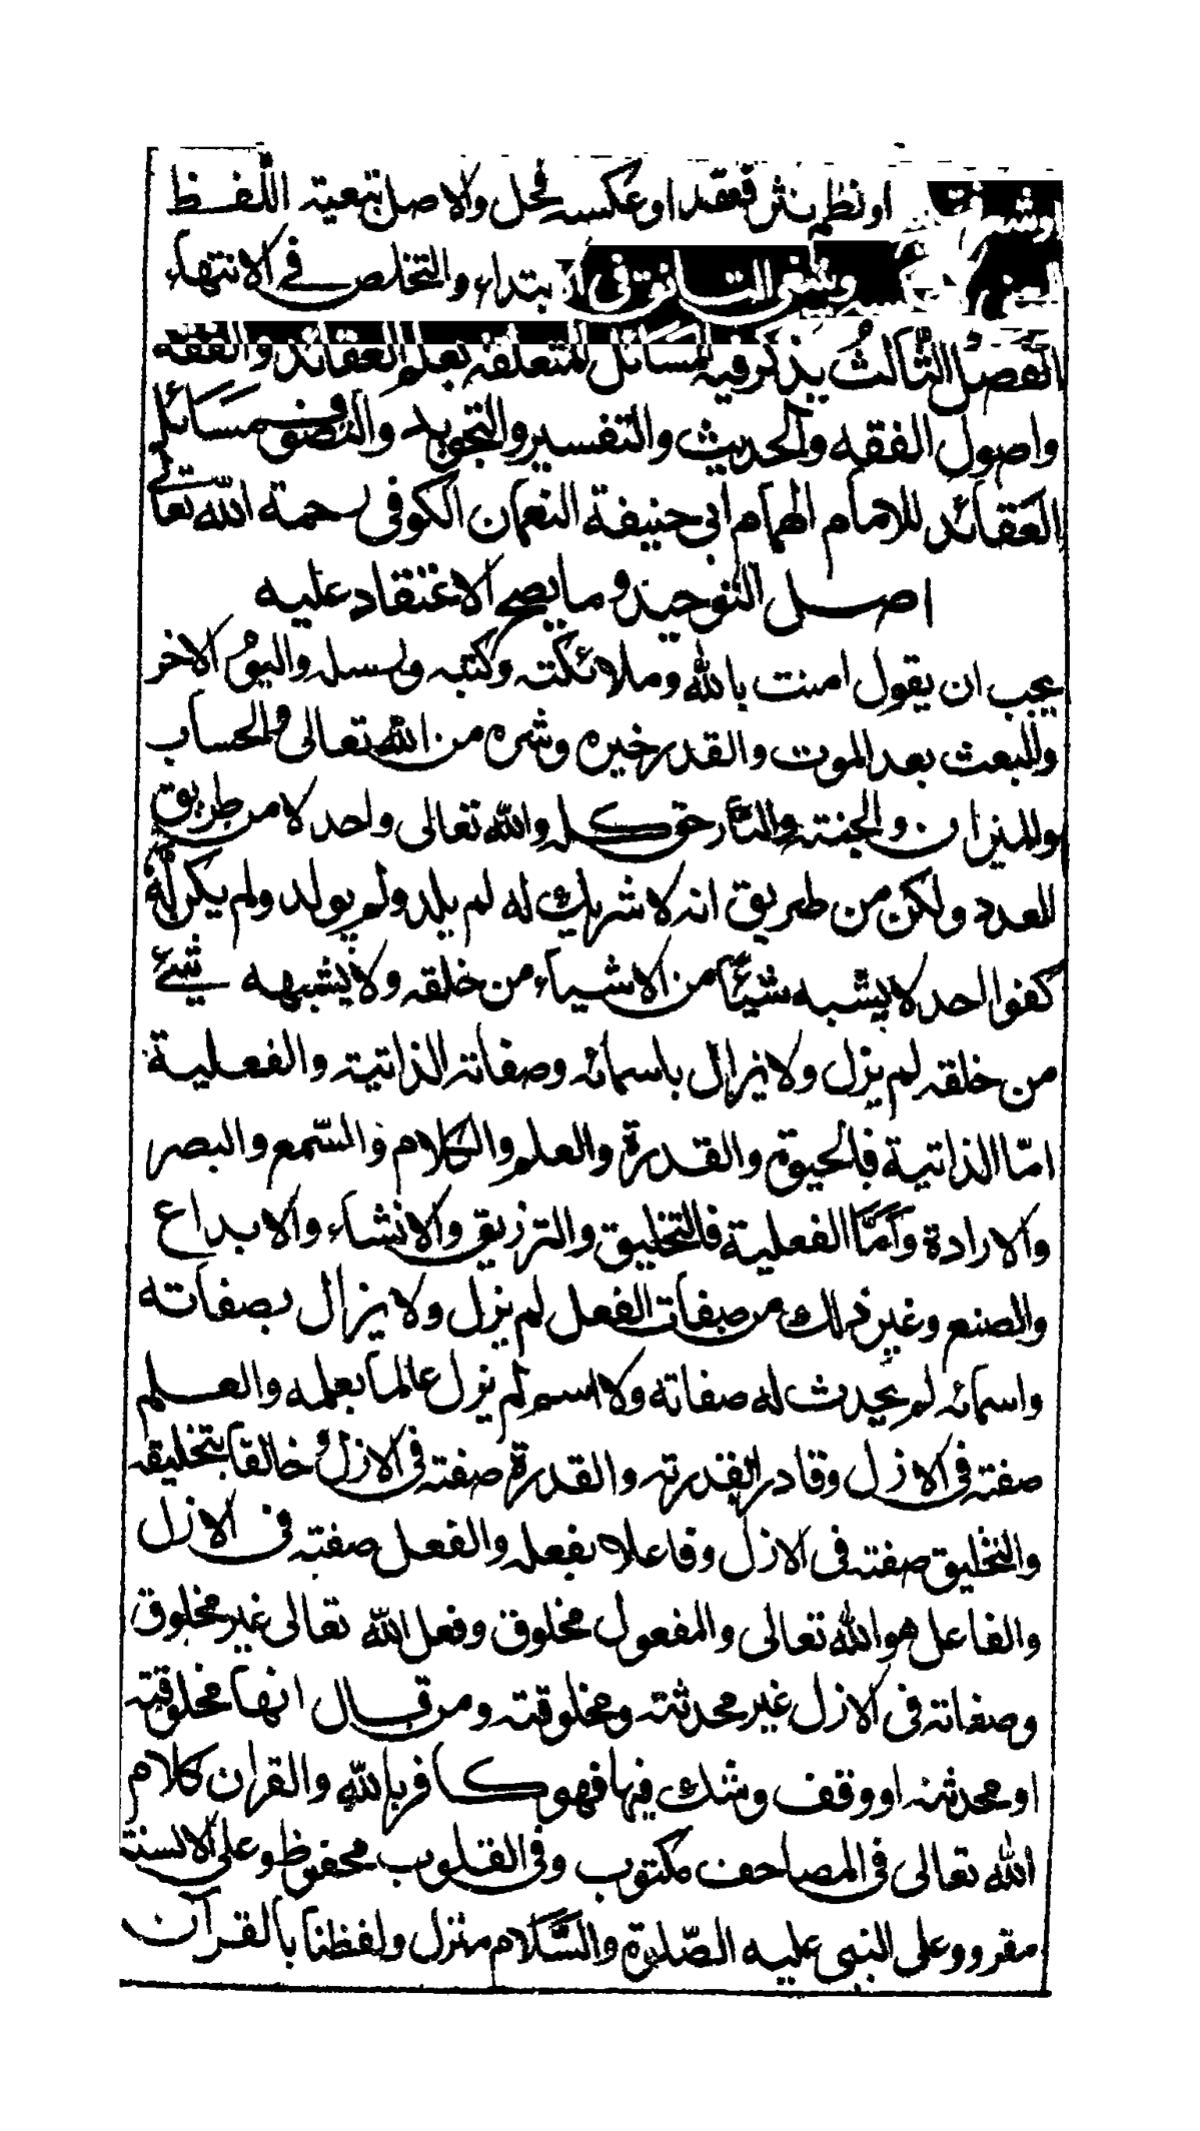 او نظم نثر فعقد او عكسه فحل والاصل تبعية اللفظ
وينبغي التانق في الابتداء والتخلص في الانتهاء
الفصل الثالث يذكر فيه المسائل المتعلقة بعلم العقائد والفقه
واصول الفقه والحديث والتفسير والتجويد والتصوف مسائل
العقائد للامام الهمام ابي حنيفة النعمان الكوفي رحمة الله تعالى
اصل التوحيد وما يصح الاعتقاد عليه
يجب ان يقول امنت بالله وملائكته وكتبه ورسله واليوم الاخر
والبعث بعد الموت والقدر خيره وشره من الله تعالى والحساب
والميزان والجنة والنار حق كله والله تعالى واحد لا من طريق
العدد ولكن من طريق انه لا شريك له لم يلد ولم يولد ولم يكن له
كفوا احد لا يشبه شيئا من الاشياء من خلقه ولا يشبهه شيئ
من خلقه لم يزل ولا يزال باسمائه وصفاته الذاتية والفعلية
امّا الذاتية فالحيوة والقدرة والعلم والكلام والسّمع والبصر
والارادة وَاَمَّا الفعلية فالتخليق والترزيق والانشاء والابداع
والصنع وغير ذلك من صفات الفعل لم يزل ولا يزال بصفاته
واسمائه لم يحدث له صفاته ولا اسم لم يزل عالما بعلمه والعلم
صفته في الازل وقادرا بقدرته والقدرة صفته في الازل وخالقا بتخليقه
والتخليق صفته في الازل وفاعلا بفعله والفعل صفته في الازل
والفاعل هو الله تعالى والمفعول مخلوق وفعل الله تعالى غير مخلوق
وصفاته في الازل غير محدثة ومخلوقة ومن قال انها مخلوقة
او محدثة او وقف وشك فيها فهو كافر بالله والقران كلام
الله تعالى في المصاحف مكتوب وفي القلوب محفوظ وعلى الالسنة
مقرو وعلى النبي عليه الصّلوة والسَّلام منزل ولفظنا بالقرآن